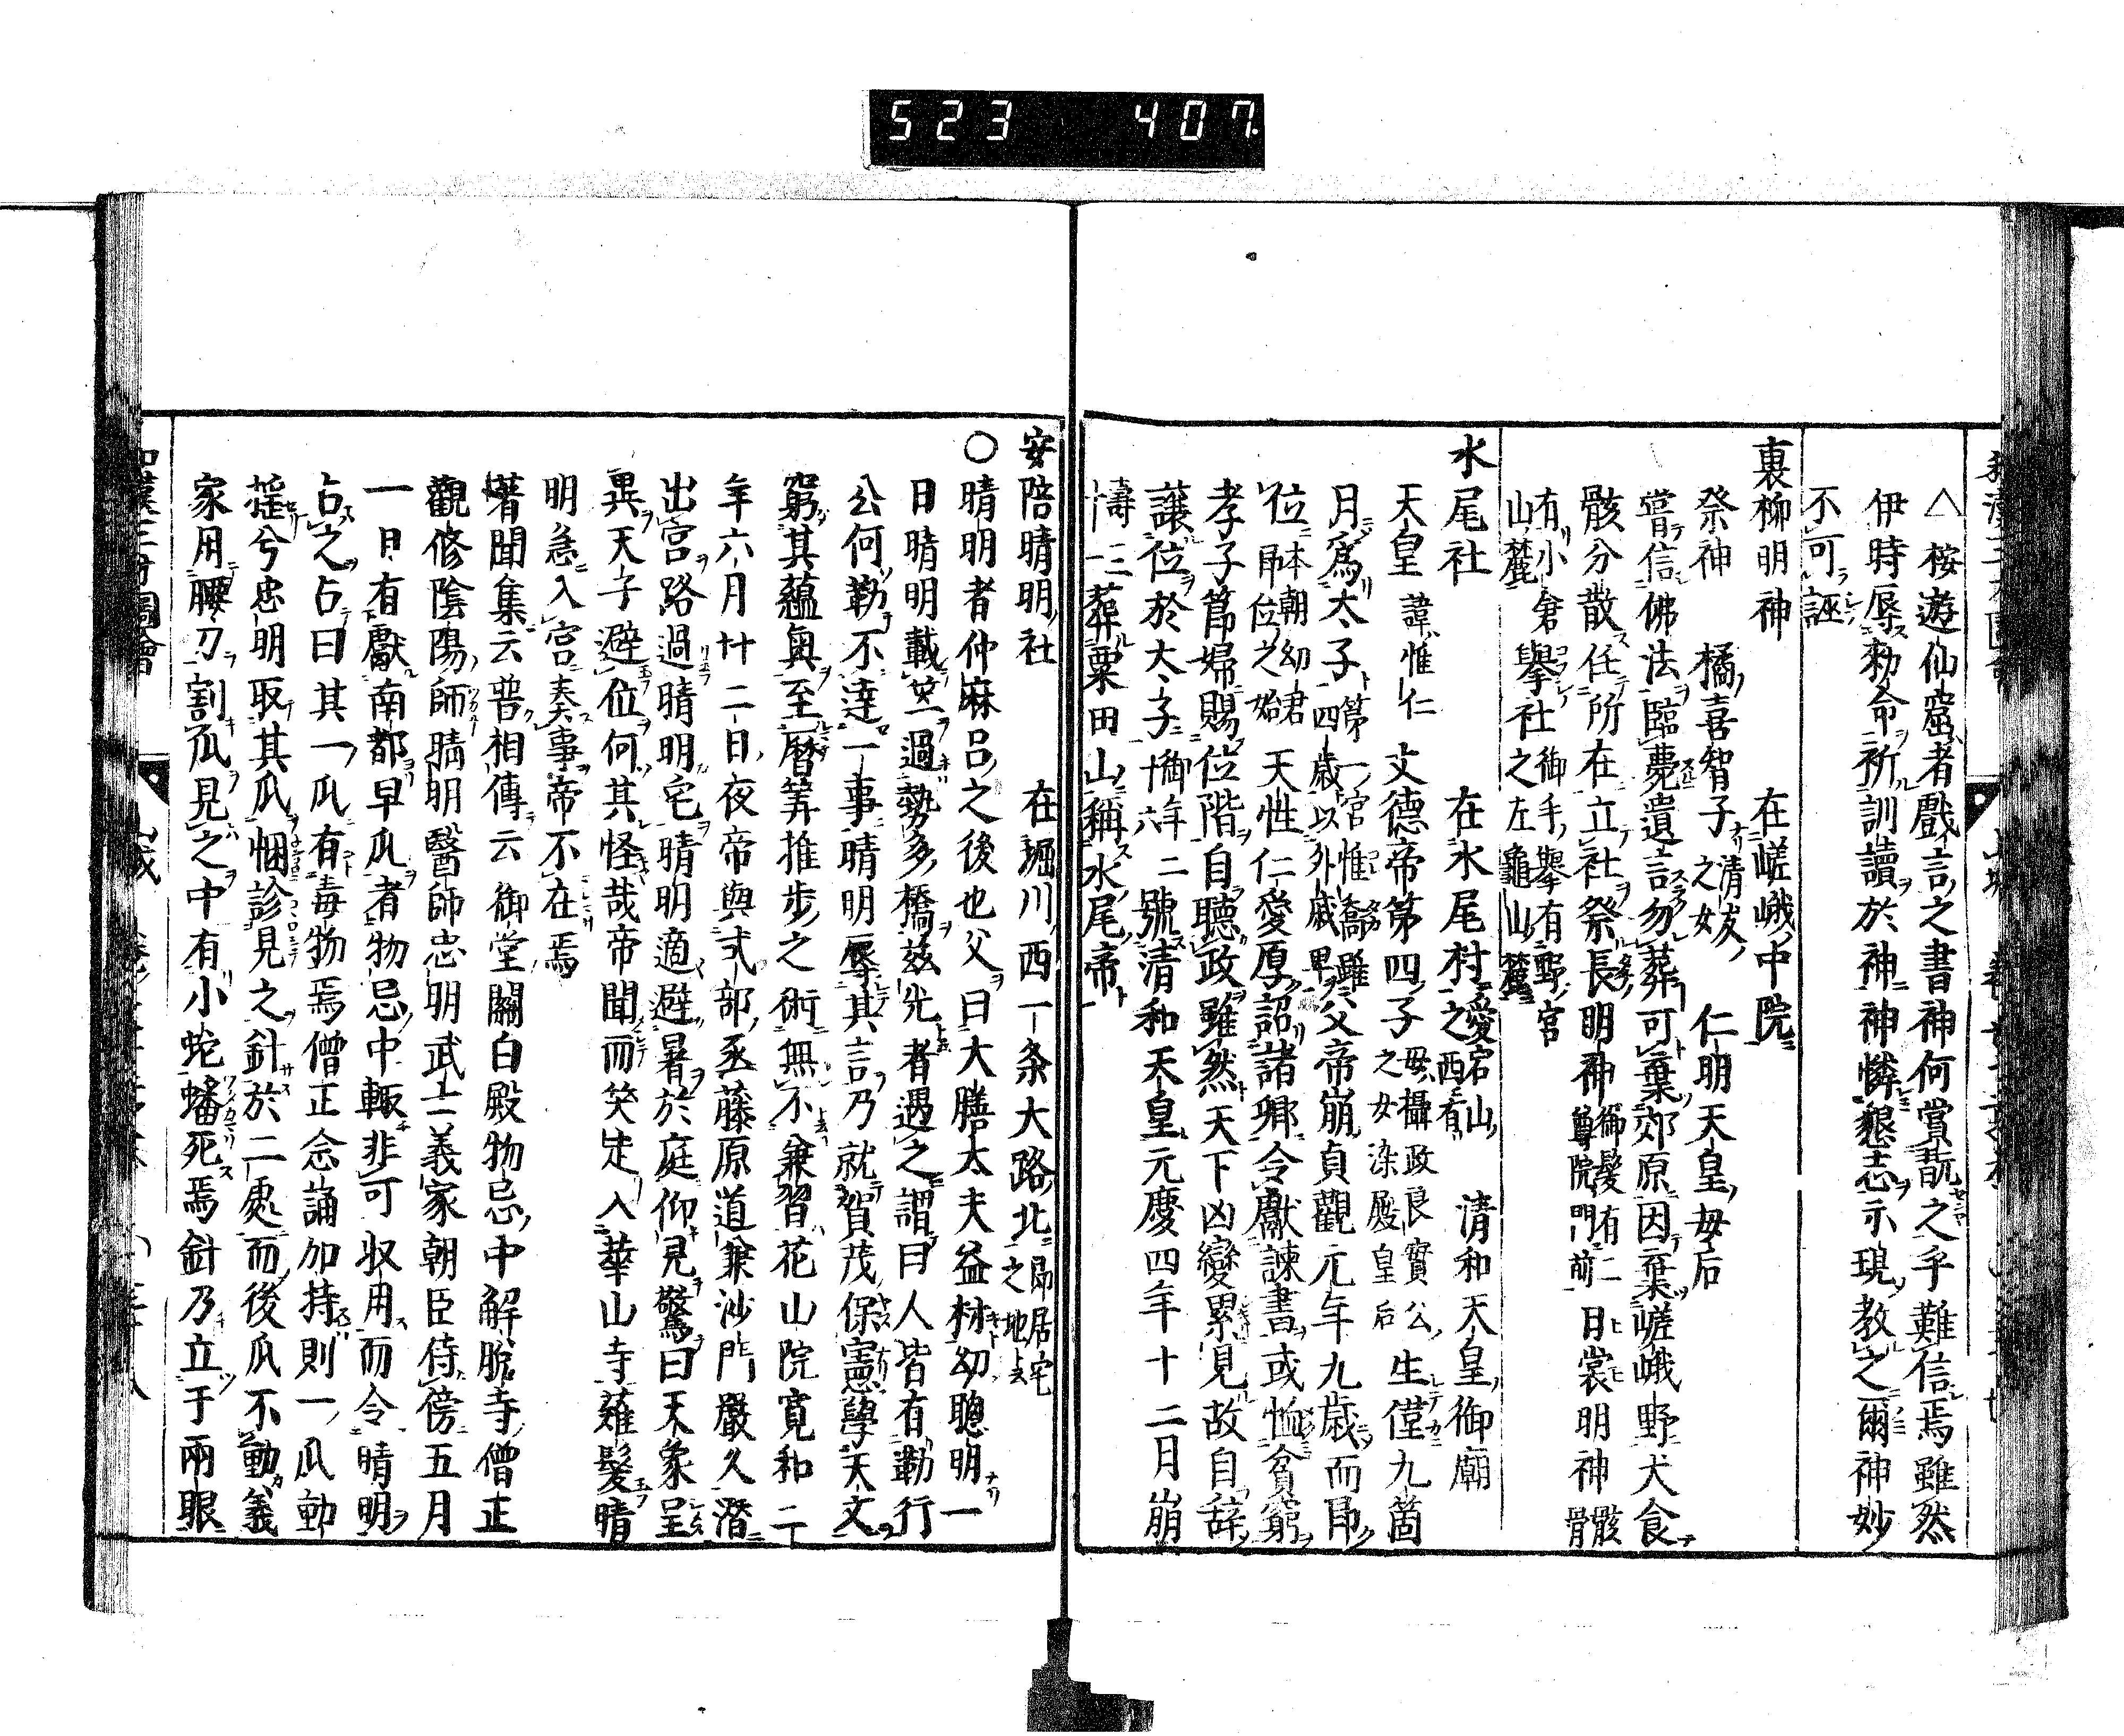 523 407
△桉遊仙窟者戲言之書神何賞翫之乎難信焉雖然
伊時辱勅命祈訓讀於神神憐懇志示現教之爾神妙
不可誣
裏柳明神 在嵯峨中院
祭神 橘喜智子 清友之女 仁明天皇母后
嘗信佛法臨薨遺言勿葬可棄郊原因棄嵯峨野犬食
骸分散任所在立社祭長明神 御髮有二尊院門前 日裳明神 骸骨
有小倉山麓 擧社 御手擧有野宮之左龜山麓
水尾社 在水尾村之 愛宕山西有 清和天皇御廟
天皇 諱惟仁 文德帝第四子 母攝政良實公之女染殿皇后 生僅九箇
月爲太子 第一宮惟喬雖四歲以外戚卑 父帝崩貞觀元年九歲而卽
位 本朝幼君卽位之始 天性仁愛厚詔諸卿令獻諫書或恤貧窮
孝子節婦賜位階自聽政雖然天下凶變累見故自辭
讓位於太子 御年二十六 號清和天皇元慶四年十二月崩
壽三十一 葬粟田山稱水尾帝
安陪晴明社 在堀川西一条大路北 卽居宅之地云
〇晴明者仲麻呂之後也父曰大膳太夫益材幼聰明一
日晴明載笠過勢多橋玆光者遇之謂曰人皆有勤行
公何勤不達一事晴明辱其言乃就賀茂保憲學天文
窮其蘊奥至曆筭推步之術無不兼習花山院寬和二
年六月廿二日夜帝與式部丞藤原道兼沙門嚴久潛
出宮路過晴明宅晴明適避暑於庭仰見驚曰天象呈
異天子避位何其怪哉帝聞而笑走入華山寺薙髮晴
明急入宮奏事帝不在焉
著聞集云昔相傳云御堂關白殿物忌中解脫寺僧正
觀修陰陽師晴明醫師忠明武士義家朝臣侍傍五月
一日有獻南都早瓜者物忌中輙非可収用而令晴明
占之占曰其一瓜有毒物焉僧正念誦加持則一瓜動
搖兮忠明取其瓜悃診見之針於二處而後瓜不動義
家用腰刀割瓜見之中有小蛇蟠死焉針乃立于兩眼